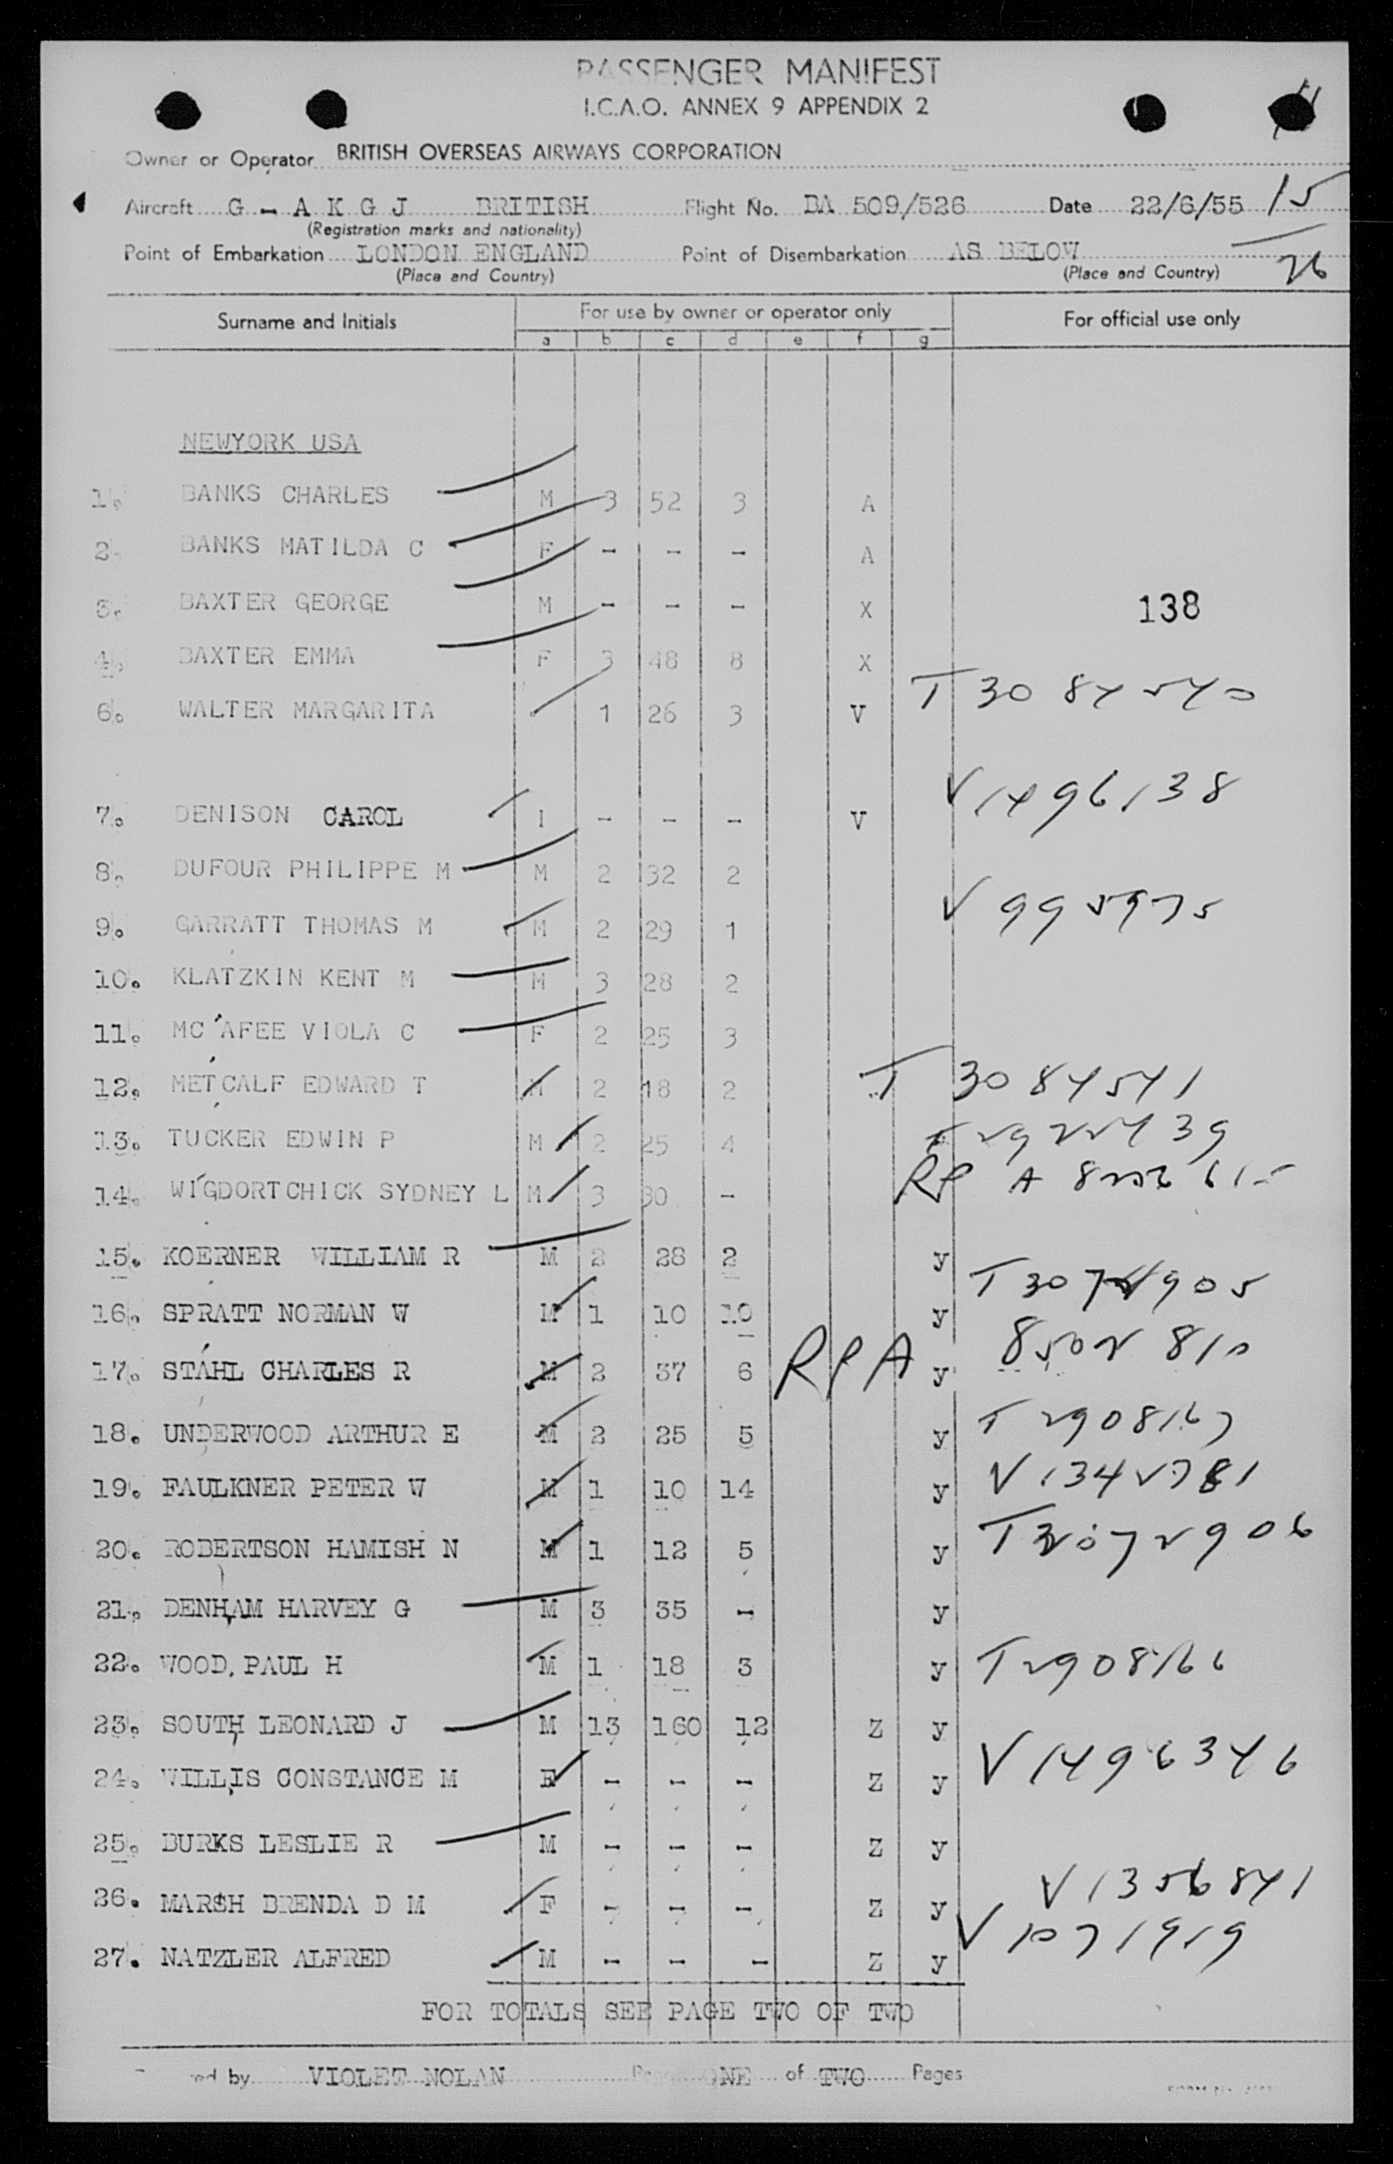 PASSENGER MANIFEST
I.C.A.O. ANNEX 9 APPENDIX 2
Owner or Operator BRITISH OVERSEAS AIRWAYS CORPORATION
Aircraft G - A K G J BRITISH Flight No. BA 509/526 Date 22/6/55 15
(Registration marks and nationality)
Point of Embarkation LONDON ENGLAND Point of Disembarkation AS BELOW
(Place and Country) (Place and Country) 26
Surname and Initials For use by owner or operator only For official use only
a b c d e f g
NEWYORK USA
1. BANKS CHARLES M 3 52 3 A
2. BANKS MATILDA C F - - - A
3. BAXTER GEORGE M - - - X 138
4. BAXTER EMMA F 3 48 8 X
6. WALTER MARGARITA 1 26 3 V T 3084540
7. DENISON CAROL I - - - V V1496138
8. DUFOUR PHILIPPE M M 2 32 2
9. GARRATT THOMAS M M 2 29 1 V 995975
10. KLATZKIN KENT M M 3 28 2
11. MC'AFEE VIOLA C F 2 25 3
12. METCALF EDWARD T M 2 18 2 T 3084541
13. TUCKER EDWIN P M 2 25 4 T 2922439
14. WIGDORTCHICK SYDNEY L M 3 30 - RP A
15. KOERNER WILLIAM R M 2 28 2 y
16. SPRATT NORMAN W M 1 10 10 y
17. STAHL CHARLES R M 2 37 6 RPA y 8502810
18. UNDERWOOD ARTHUR E M 2 25 5 y T 2908167
19. FAULKNER PETER W M 1 10 14 y V 1342781
20. ROBERTSON HAMISH N M 1 12 5 y
21. DENHAM HARVEY G M 3 35 - y
22. WOOD, PAUL H M 1 18 3 y T2908166
23. SOUTH LEONARD J M 13 160 12 Z y
24. WILLIS CONSTANCE M F - - - Z y V1496346
25. BURKS LESLIE R M - - - Z y
26. MARSH BRENDA D M F - - - Z y V1356841
27. NATZLER ALFRED M - - - Z y V 1071919
FOR TOTALS SEE PAGE TWO OF TWO
by VIOLET NOLAN ONE of TWO Pages